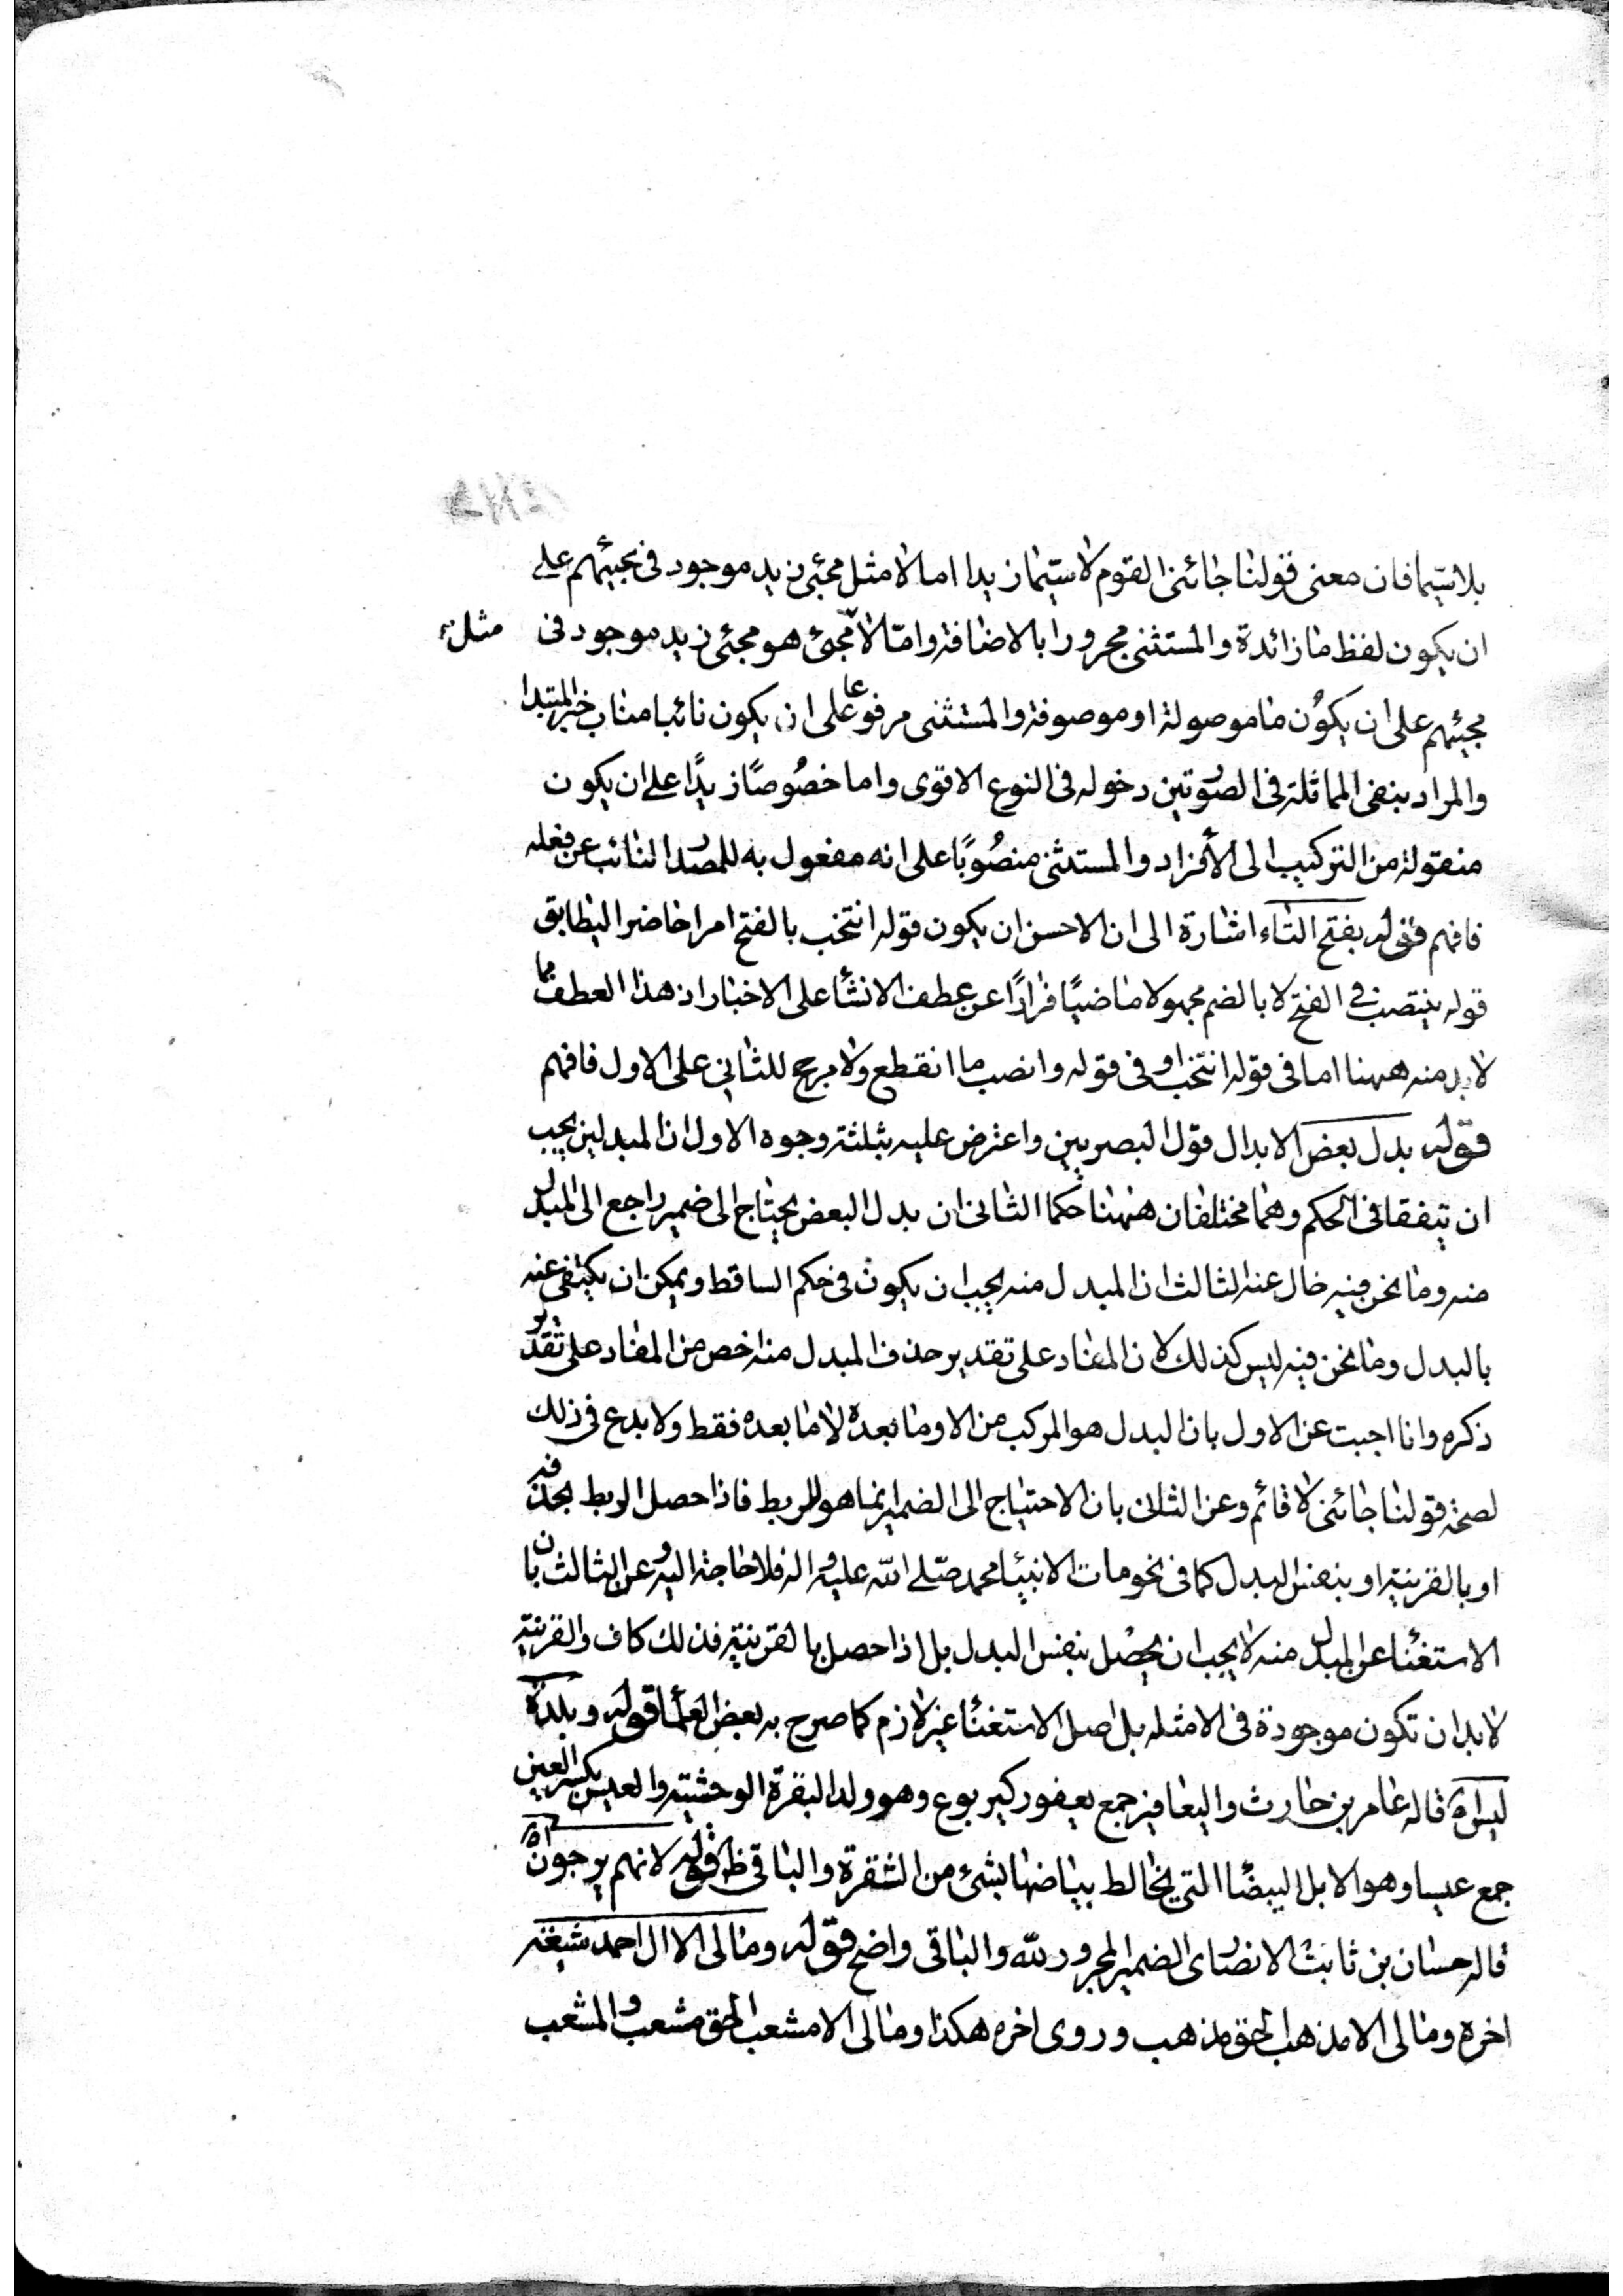 بلاسيّما فان معنى قولنا جائنى القوم لاسيّما زيد اما لا مثل مجئى زيد موجود فى مجيئهم على
ان يكون لفظ ما زائدة والمستثنى مجرورا بالاضافة وامّا لا مجئ هو مجئى زيد موجود فى مثل
مجيئهم على ان يكون ما موصولة او موصوفة والمستثنى مرفوعا على ان يكون نائبا مناب خبر المبتدا
والمراد بنفى المماثلة فى الصورتين دخوله فى النوع الاقوى واما خصُوصًا زيدًا على ان يكون
منقولة من التركيب الى الأفراد والمستثنى منصُوبًا على انه مفعول به للمصدر النائب عن فعله
فافهم قوله بفتح التاء اشارة الى ان الاحسن ان يكون قوله انتخب بالفتح امرا حاضرا ليطابق
قوله ينتصب فى الفتح لا بالضم مجهولا ماضيًا فرارًا عن عطف الانشأ على الاخبار اذ هذا العطف مما
لابد منه ههنا اما فى قوله انتخب او فى قوله وانصب ما انقطع ولا مرجح للثانى على الاول فافهم
قوله بدل بعض الابدال قول البصريين واعترض عليه بثلثة وجوه الاول ان المبدلين يجب
ان يتفقا فى الحكم وهما مختلفان ههنا حكما الثانى ان بدل البعض يحتاج الى ضمير راجع الى المبدل
منه وما نحن فيه خال عنه الثالث ان المبدل منه يجب ان يكون فى حكم الساقط ويمكن ان يكتفى عنه
بالبدل وما نحن فيه ليس كذلك لان المفاد على تقدير حذف المبدل منه اخص من المفاد على تقدير
ذكره وانا اجبت عن الاول بان البدل هو المركب من الا وما بعده لا ما بعده فقط ولا بدع فى ذلك
لصحة قولنا جائنى لا قائم وعن الثانى بان الاحتياج الى الضمير انما هو للربط فاذا حصل الربط بحذفه
او بالقرينة او بنفس البدل كما فى نحو مات الانبيا محمد صلى الله عليه واله فلا حاجة اليه وعن الثالث بان
الاستغنا عن المبدل منه لا يجب ان يحصل بنفس البدل بل اذا حصل بالقرينة فذلك كاف والقرينة
لابد ان تكون موجودة فى الامثله بل اصل الاستغنأ غير لازم كما صرح به بعض العلمأ قوله وبلدة
ليس اه قاله عامر بن حارث واليعافير جمع يعفور كيربوع وهو ولد البقرة الوحشية والعيس بكسر العين
جمع عيسا وهو الابل البيضأ التى يخالط بياضها بشئ من الشقرة والباقى ظ قوله لانهم يرجون اه
قاله حسان بن ثابت الانصارى الضمير المجرور لله والباقى واضح قوله ومالى الا ال احمد شيعة
اخره ومالى الا مذهب الحق مذهب وروى اخره هكذا ومالى الا مشعب الحق مشعب والمشعب